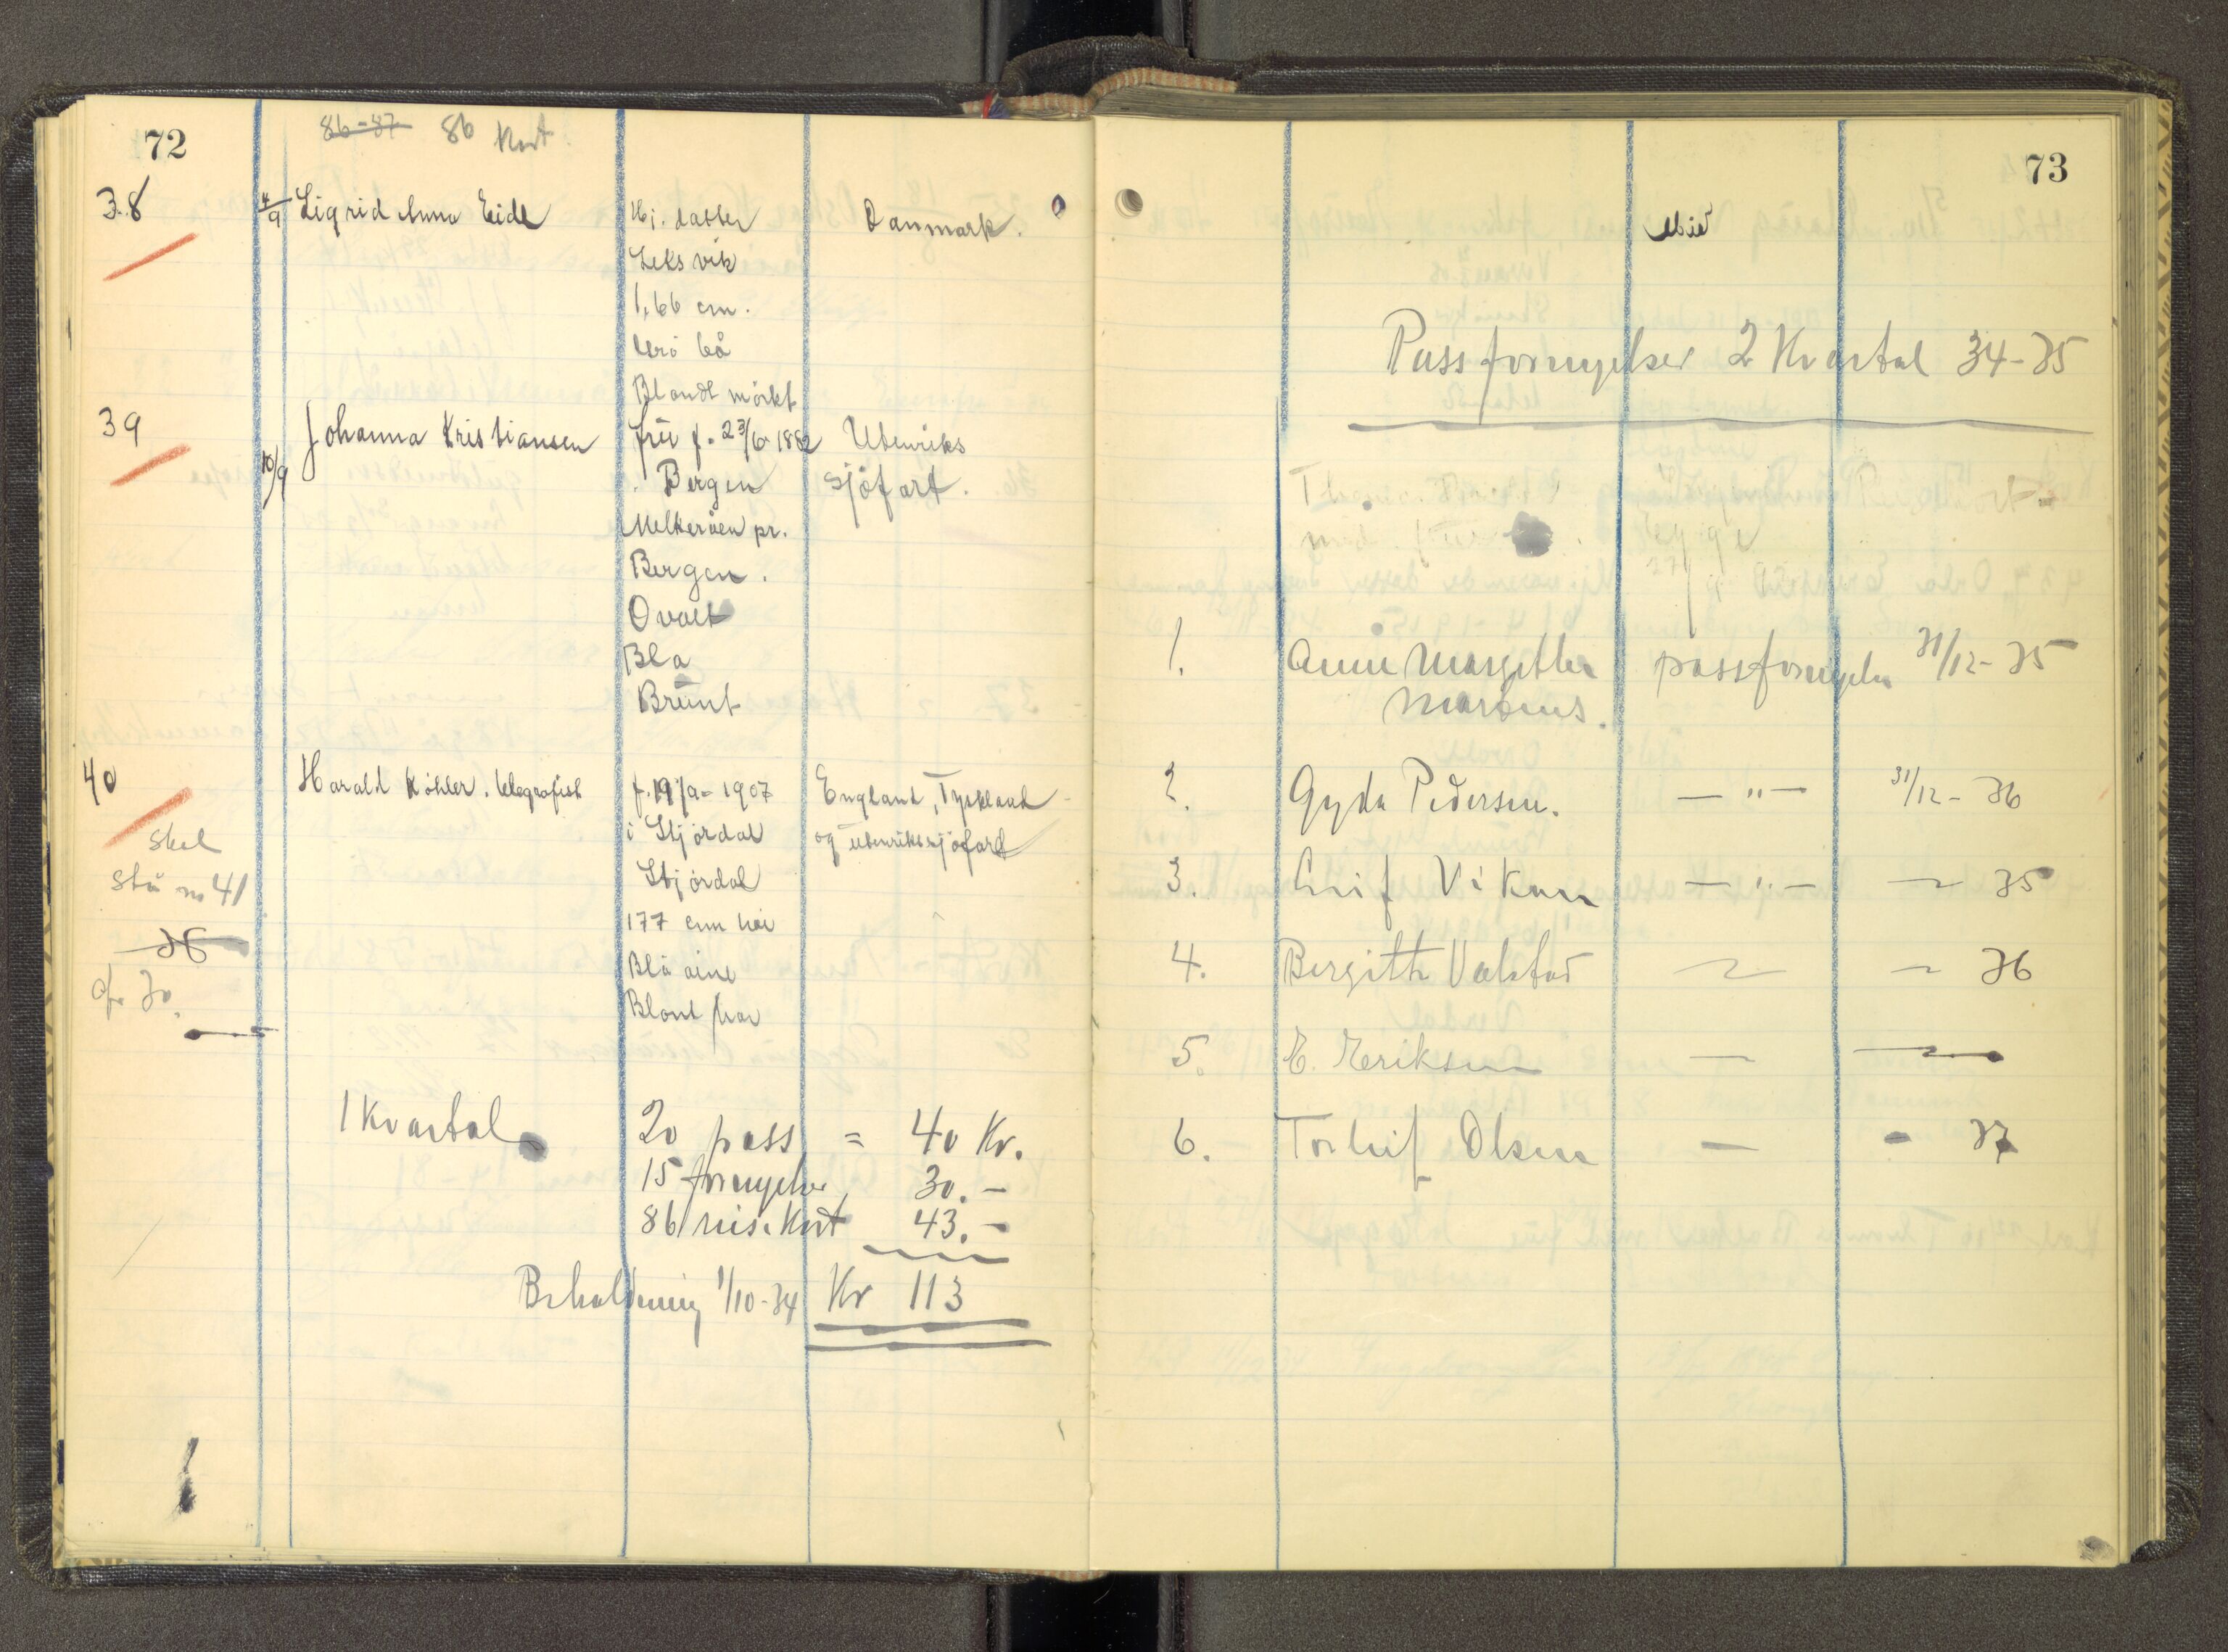 72
86-87 86 Kort
38 4/9 Sigrid Anna Eide Hj. datter Danmark.
Leksvik
1,66 cm.
Grå blå
Blondt mörkt
39 10/9 Johanna Kristiansen frü f. 23/6-1882 Utenriks
Bergen sjöfart.
Melkeråen pr.
Bergen.
Ovalt
Blå
Brünt
40 Harald Köhler. telegrafist f. 19/9-1907 England, Tyskland
i Stjördal og utenriks sjöfart
Skal
Stjördal
stå no 41
177 cm höi
36
Blå öine
Blont hår
1 Kvartal 20 pass = 40 Kr.
15 fornyelser 30.-
86 reisekort 43.-
Beholdning 1/10-34 Kr 113
73
Passfornyelser 2 Kvartal 34-35
1. Anne Margrethe passfornyelse 31/12-35
Marcus.
2. Gyda Pedersen. — " — 31/12-36
3. Leif Vikan — " — ~ 35
4. Bergitte Valstad ~ ~ 36
5. E. Eriksen — —
6. Torleif Olsen — - 37